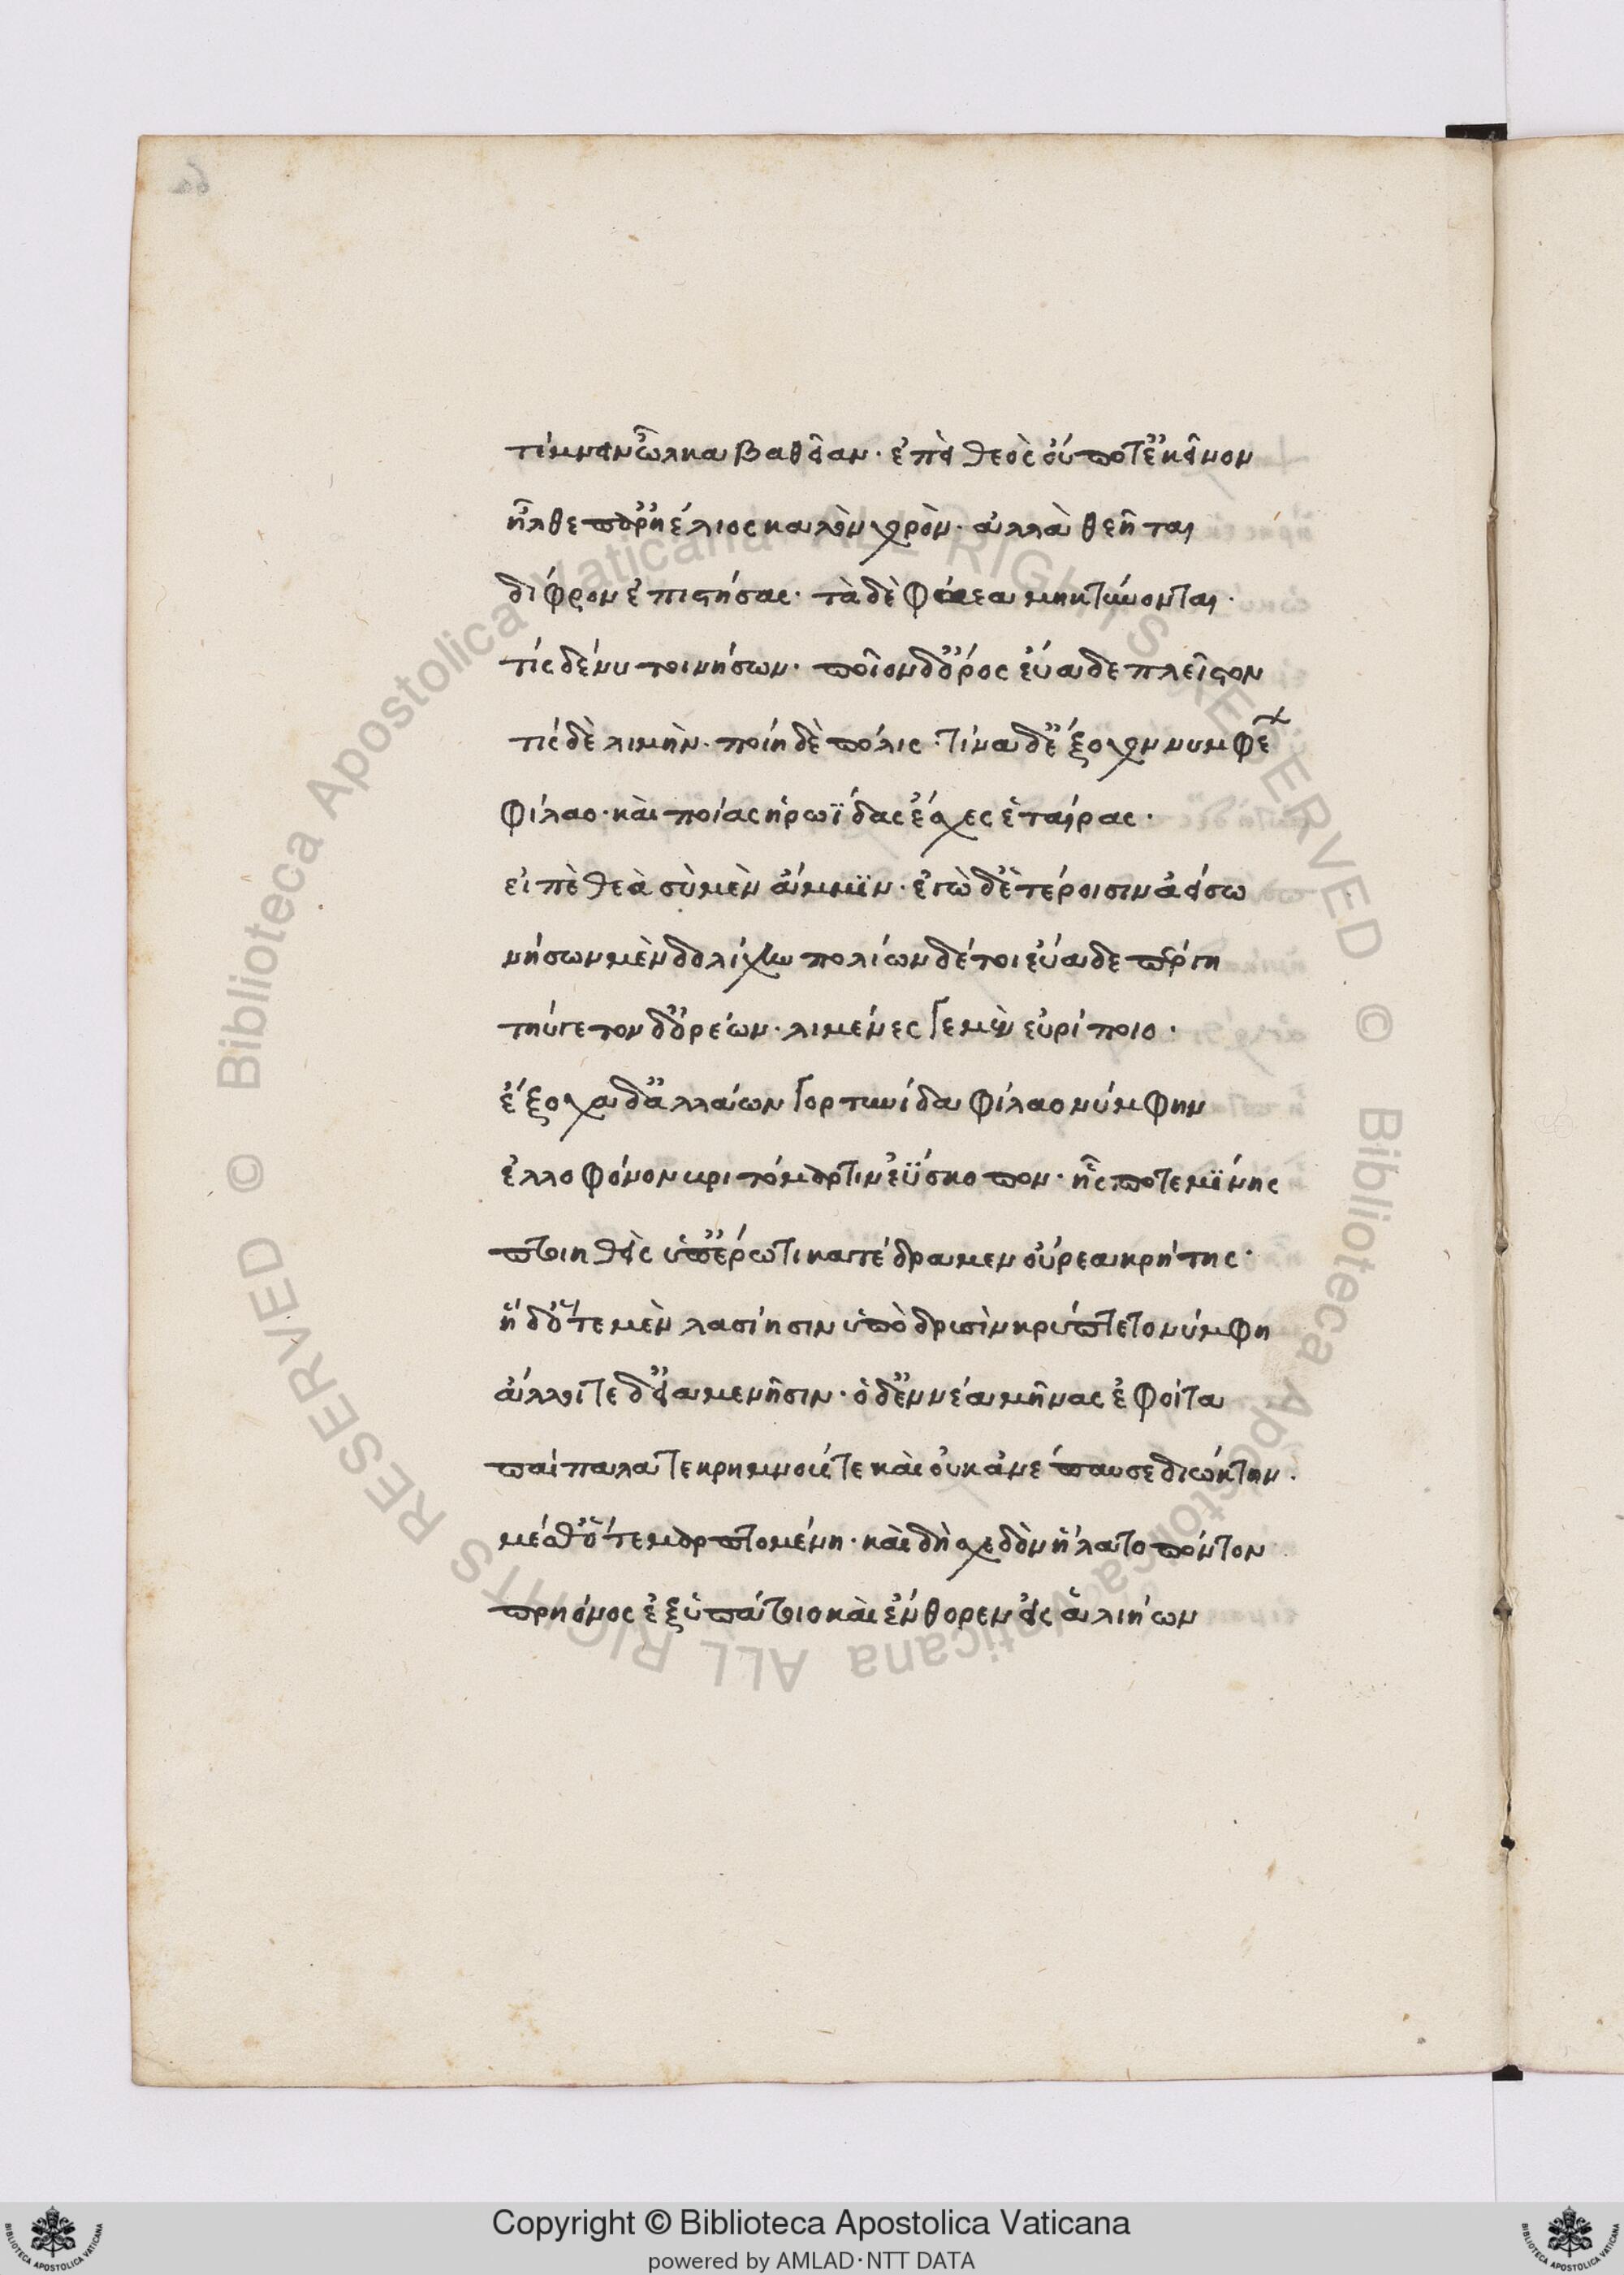 τέμνειν ὦλκα βαθεῖαν· ἐπεὶ θεὸς οὔποτ' ἐκεῖνον
ἦλθε παρ' ἠέλιος καλὸν χορὸν· ἀλλὰ θεῆται
δίφρον ἐπιστήσας· τὰ δὲ φάεα μηκύνονται·
τίς δέ νυ τοι νήσων· ποῖον δ' ὄρος εὔαδε πλεῖστον
τίς δὲ λιμὴν· ποίη δὲ πόλις· τίνα δ' ἔξοχα νυμφέων
φίλαο· καὶ ποίας ἡρωΐδας ἔσχες ἑταίρας·
εἰπὲ θεὰ σὺ μὲν ἄμμϊν· ἐγὼ δ' ἑτέροισιν ἀείσω
νήσων μὲν δολίχη πολίων δέ τοι εὔαδε πέργη
τηΰγετον δ' ὀρέων· λιμένες γε μὲν εὐρίποιο·
ἔξοχα δ' ἀλλάων γορτυνίδα φίλαο νύμφην
ἐλλοφόνον βριτόμαρτιν ἐΰσκοπον· ἧς ποτε μΐνης
πτοιηθεὶς ὑπ' ἔρωτι κατέδραμεν οὔρεα κρήτης·
ἡ δ' ὁτὲ μὲν λασίῃσιν ὑπὸ δρυσὶν κρύπτετο νύμφη
ἄλλοτε δ' εἱαμενῇσιν· ὁ δ' ἐννέα μῆνας ἐφοίτα
παίπαλά τε κρημνούς τε καὶ οὐκ ἀνέπαυσε διωκτήν·
μέσφ' ὅτε μαρπτομένη· καὶ δὴ σχεδὸν ἥλατο πόντον
πρηόνος ἐξ ὑπάτοιο καὶ ἔνθορεν εἰς ἁλιήων
Copyright © Biblioteca Apostolica Vaticana
powered by AMLAD·NTT DATA